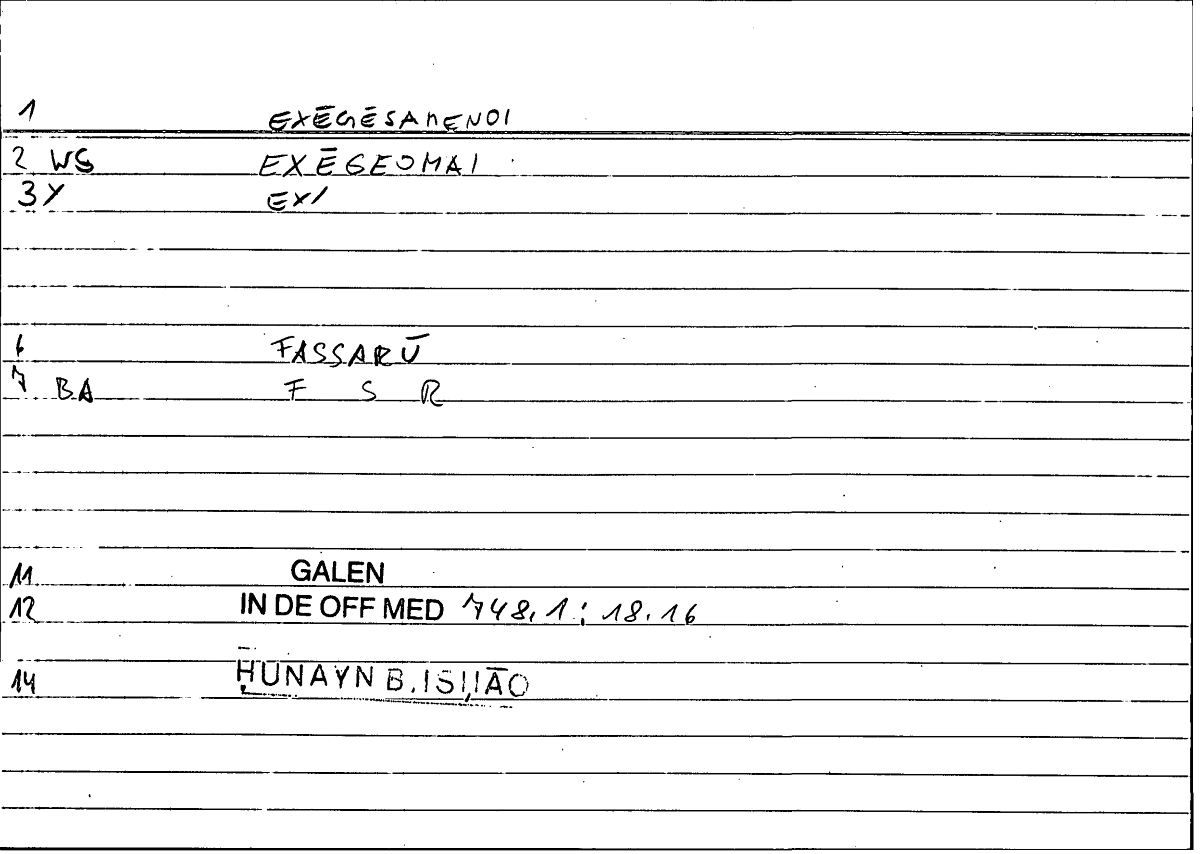 1 EXĒGĒSAMENOI
2 WS EXĒGEOMAI
3Y EX/
6 FASSARŪ
7 BA F S R
11 GALEN
12 IN DE OFF MED 748,1 ; 18.16
14 ḤUNAYN B. ISḤĀQ